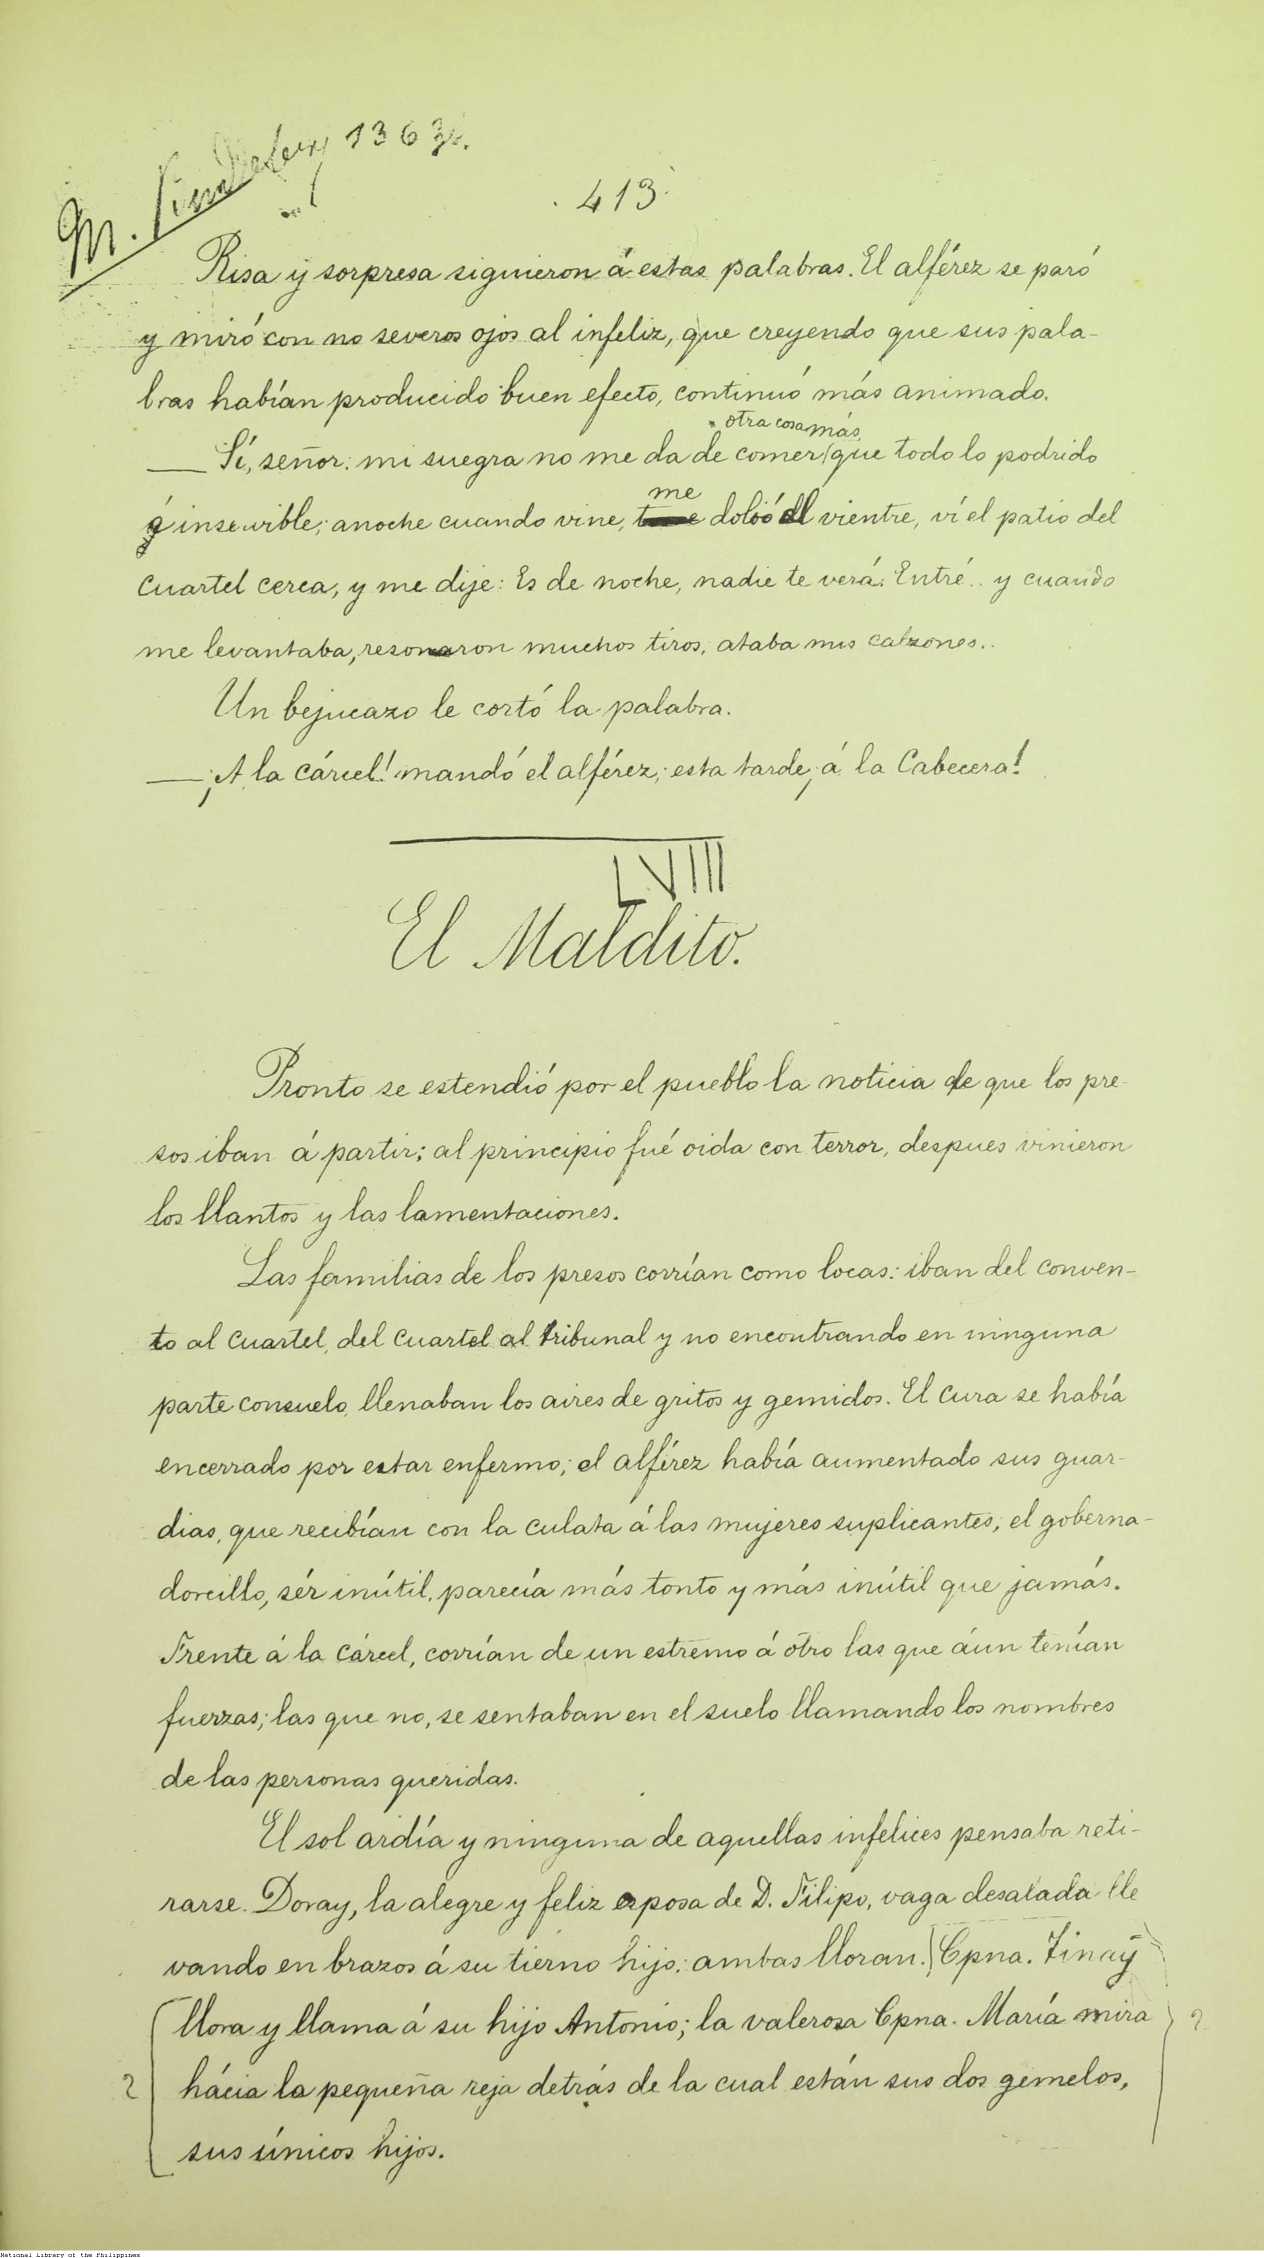 M. 1363
413
Risa y sorpresa siguieron á estas palabras. El alférez se paró
y miró con no severos ojos al infeliz, que creyendo que sus pala-
bras habían producido buen efecto, continuó más animado.
otra cosa más
— Sí, señor: mi suegra no me da de comer que todo lo podrido
é inservible; anoche cuando vine, me dolió el vientre, ví el patio del
cuartel cerca, y me dije: Es de noche, nadie te verá. Entré.. y cuando
me levantaba, resonaron muchos tiros, ataba mis calzones..
Un bejucazo le cortó la palabra.
— ¡A la cárcel! mandó el alférez; esta tarde, á la Cabecera!
LVIII
El Maldito.
Pronto se estendió por el pueblo la noticia de que los pre-
sos iban á partir; al principio fué oida con terror, despues vinieron
los llantos y las lamentaciones.
Las familias de los presos corrían como locas: iban del conven-
to al cuartel, del cuartel al tribunal y no encontrando en ninguna
parte consuelo, llenaban los aires de gritos y gemidos. El cura se había
encerrado por estar enfermo; el alférez había aumentado sus guar-
dias, que recibían con la culata á las mujeres suplicantes; el goberna-
dorcillo, sér inútil, parecía más tonto y más inútil que jamás.
Frente á la cárcel, corrían de un estremo á otro las que áun tenían
fuerzas; las que no, se sentaban en el suelo llamando los nombres
de las personas queridas.
El sol ardía y ninguna de aquellas infelices pensaba reti-
rarse. Doray, la alegre y feliz esposa de D. Filipo, vaga desalada lle
vando en brazos á su tierno hijo: ambas lloran. Cpna. Tinay
llora y llama á su hijo Antonio; la valerosa Cpna. María mira
hácia la pequeña reja detrás de la cual están sus dos gemelos,
sus únicos hijos.
National Library of the Philippines